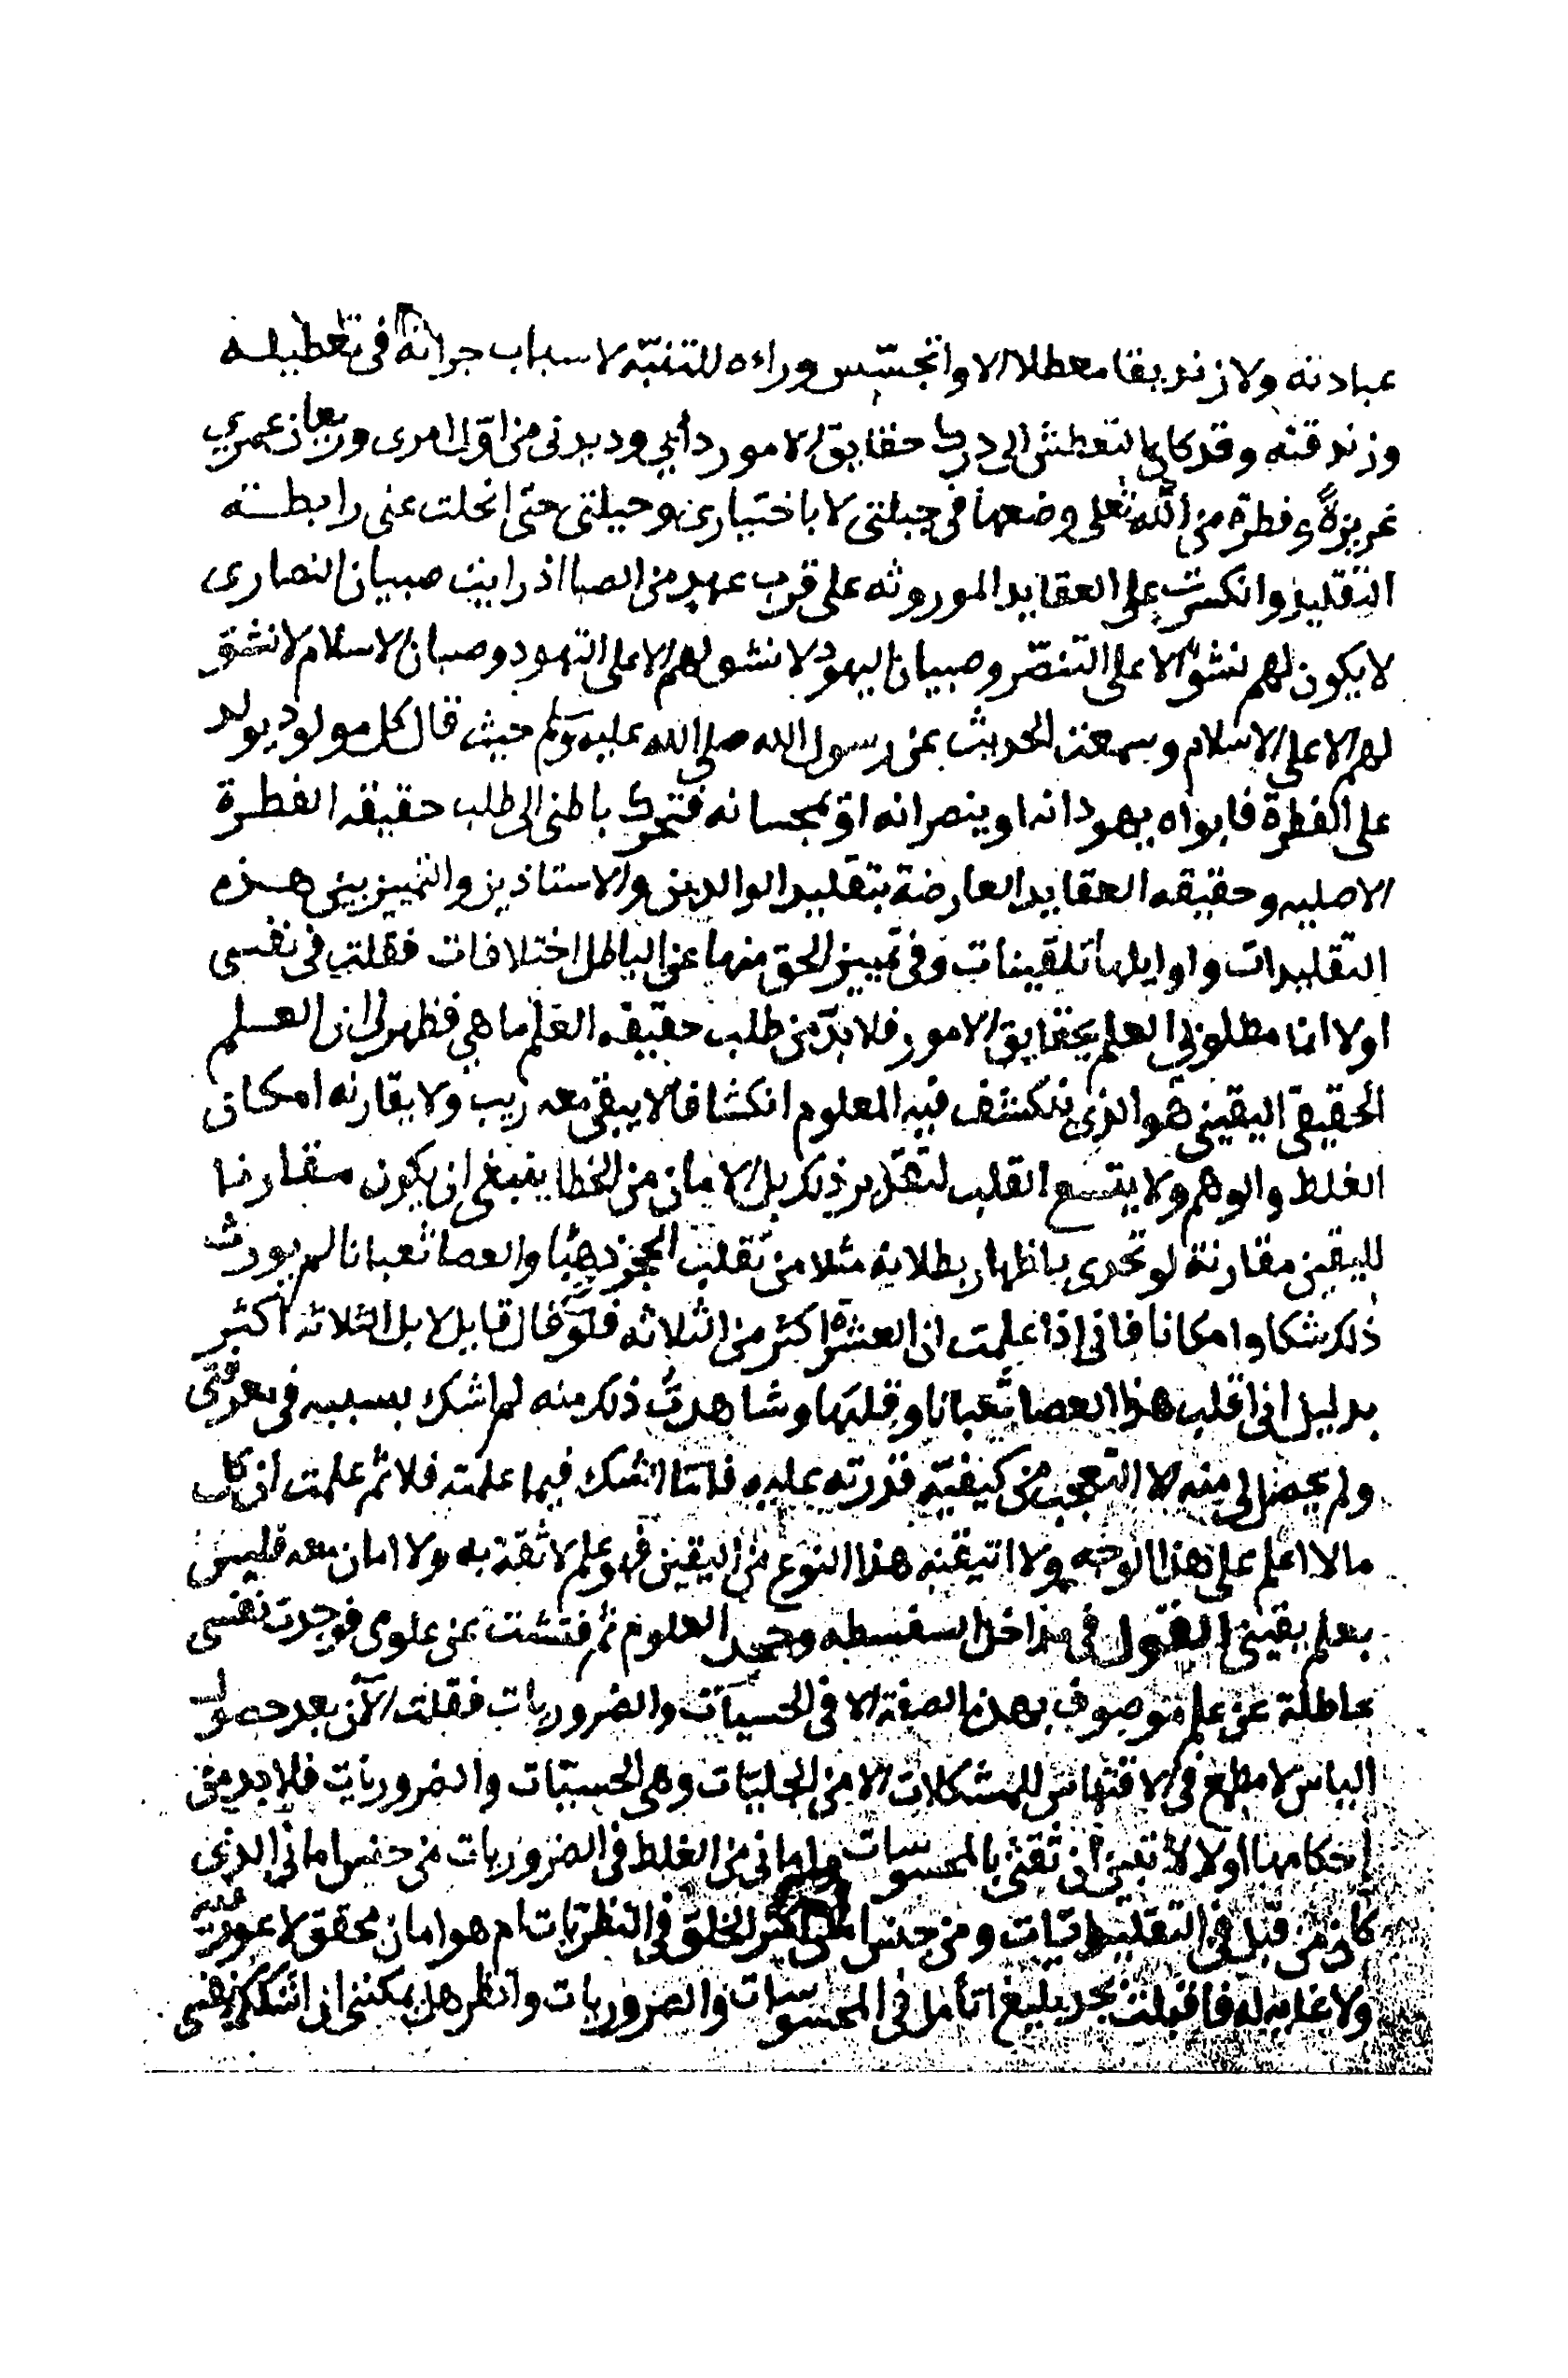 عبادته ولا زنديقا معطلا الا واتجسّس وراءه للتنبّه لاسباب جراته في تعطيله
وزندقته وقد كان التعطش الى درك حقايق الامور دأبي وديدني من اوّل امرى وريعان عمري
غريزةً وفطرة من الله تعلى وضعها في جبلتى لا باختيارى وحيلتى حتى انحلت عنى رابطة
التقليد وانكسرت على العقايد الموروثه على قرب عهد من الصبا اذ رايت صبيان النصارى
لا يكون لهم نشوٌ الا على التنصّر وصبيان اليهود لا نشو لهم الا على التهود وصبيان الاسلام لا نشو
لهم الا على الاسلام وسمعت الحديث عن رسول الله صلى الله عليه وسلم حيث قال كل مولود يولد
على الفطرة فابواه يهودانه او ينصرانه او يمجسانه فتحرك باطنى الى طلب حقيقه الفطرة
الاصليه وحقيقه العقايد العارضة بتقليد الوالدين والاستاذين والتمييز بين هذه
التقليدات واوايلها تلقينات وفي تمييز الحق منها عن الباطل اختلافات فقلت في نفسى
اولا انما مطلوبي العلم بحقايق الامور فلا بدّ من طلب حقيقه العلم ما هي فظهر لى ان العلم
الحقيقى اليقينى هو الذى ينكشف فيه المعلوم انكشافا لا يبقى معه ريب ولا يقارنه امكان
الغلط والوهم ولا يتسع القلب لتقدير ذلك بل الامان من الخطا ينبغى ان يكون مقارنا
لليقين مقارنة لو تحدى باظهار بطلانه مثلا من يقلب الحجر ذهبًا والعصا ثعبانا لم يورث
ذلك شكا وامكانا فانى اذا علمت ان العشرة اكثر من الثلاثه فلو قال قايل لا بل الثلاثه اكثر
بدليل انى اقلب هذا العصا ثعبانا وقلبها وشاهدتُ ذلك منه لم اشك بسببه في معرفتى
ولم يحصل لى منه الا التعجب من كيفيّة قدرته عليه فامّا الشك فيما علمته فلا ثم علمت ان كل
ما لا اعلم على هذا الوجه ولا اتيقنه هذا النوع من اليقين فهو علم لا ثقة به ولا امان معه فليس
بعلم يقينى القول في مداخل السفسطه وجحد العلوم ثم فتشت عن علومى فوجدت نفسى
عاطلة عن علم موصوف بهذه الصفة الا في الحسيّات والضروريات فقلت الآن بعد حصول
الياس لا مطمع في الاقتباس للمشكلات الا من الجليّات وهى الحسيّات والضروريات فلا بد من
إحكامها اولا لأتبين أن ثقتى بالمحسوسات وامانى من الغلط في الضروريات من جنس امانى الذى
كان من قبل في التقليديات ومن جنس امان اكثر الخلق في النظريّات ام هو امان محقق لا غور فيه
ولا غايه له فاقبلت بجد بليغ اتأمل في المحسوسات والضروريات وانظر هل يمكننى ان اشكك نفسى